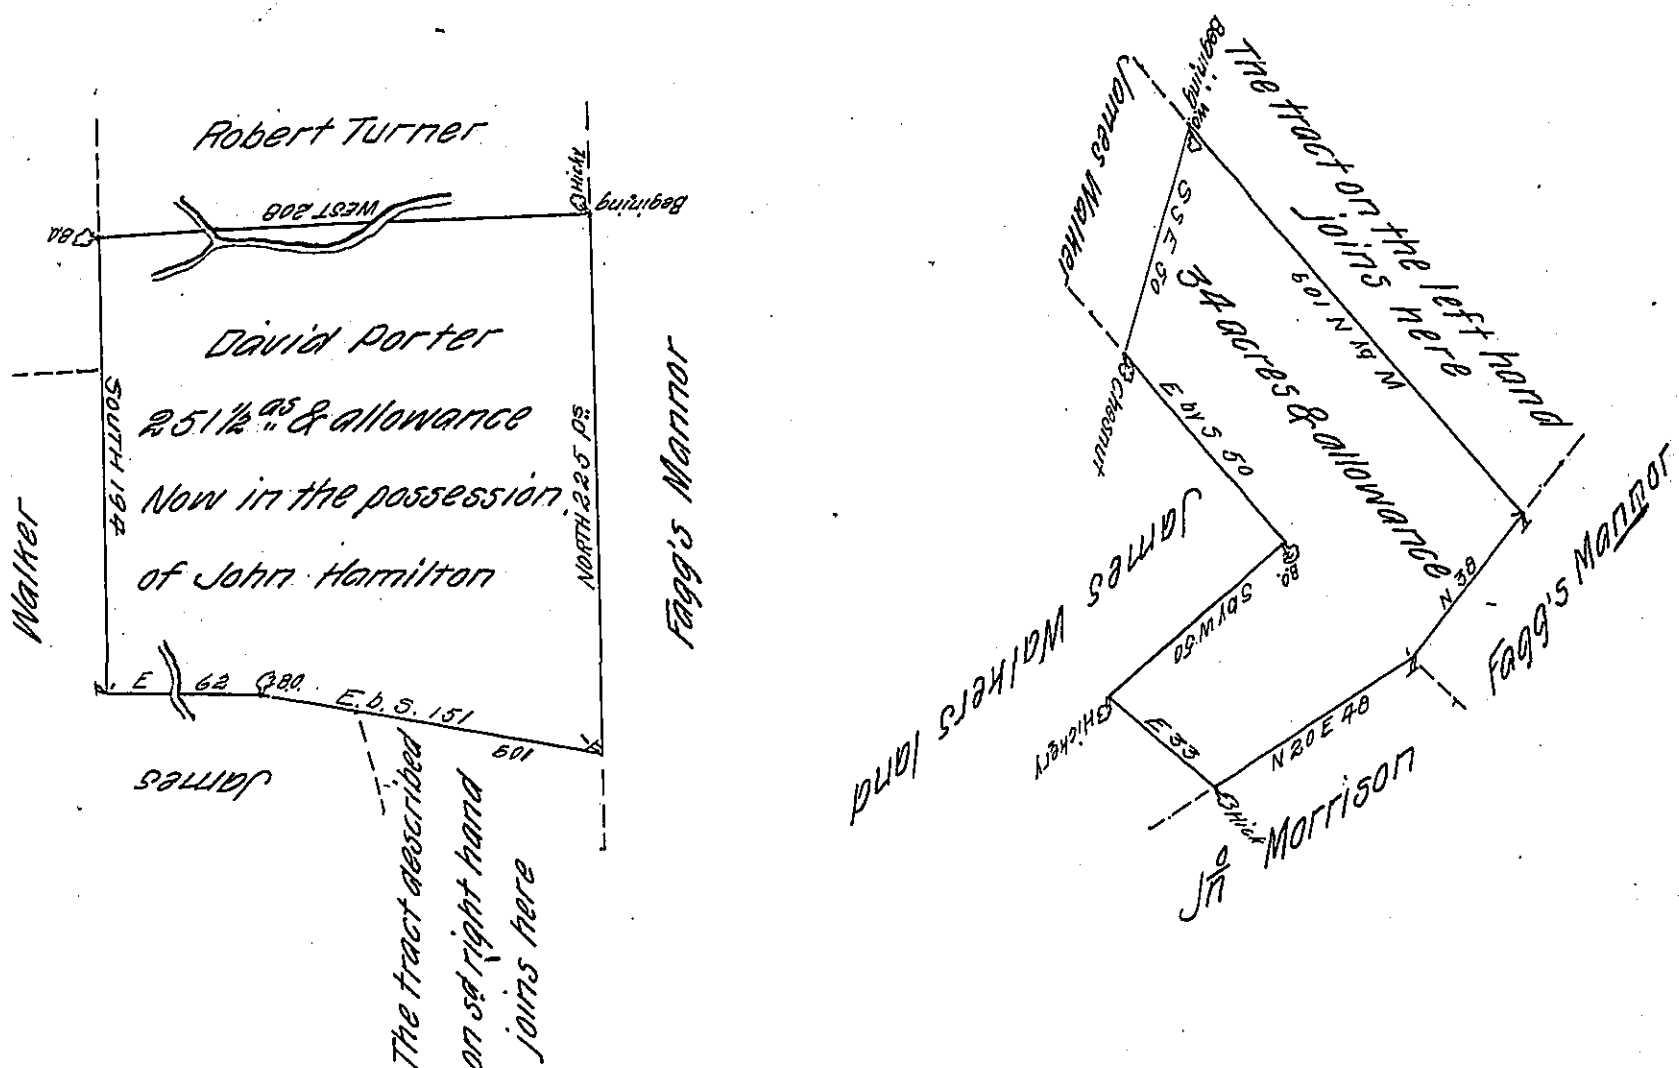 Robert Turner
Hicky
Begining
WEST 208
B.O.
David Porter
251½ as & allowance
Now in the possession
of John Hamilton
SOUTH 194
NORTH 225 ps
Walker
Fagg's Mannor
E 62
B.O.
E. b. S. 151
109
James
The tract described
on sd right hand
joins here
Begining
W.O.
The tract on the left hand
joins here
James Walker
S 5 E 50
34 acres & allowance
W by N 109
Chesnut
E by S 50
B.O.
James Walkers land
S by W 50
Hickery
E 33
Hick
N 20 E 48
N 38
Fagg's Mannor
Jno Morrison